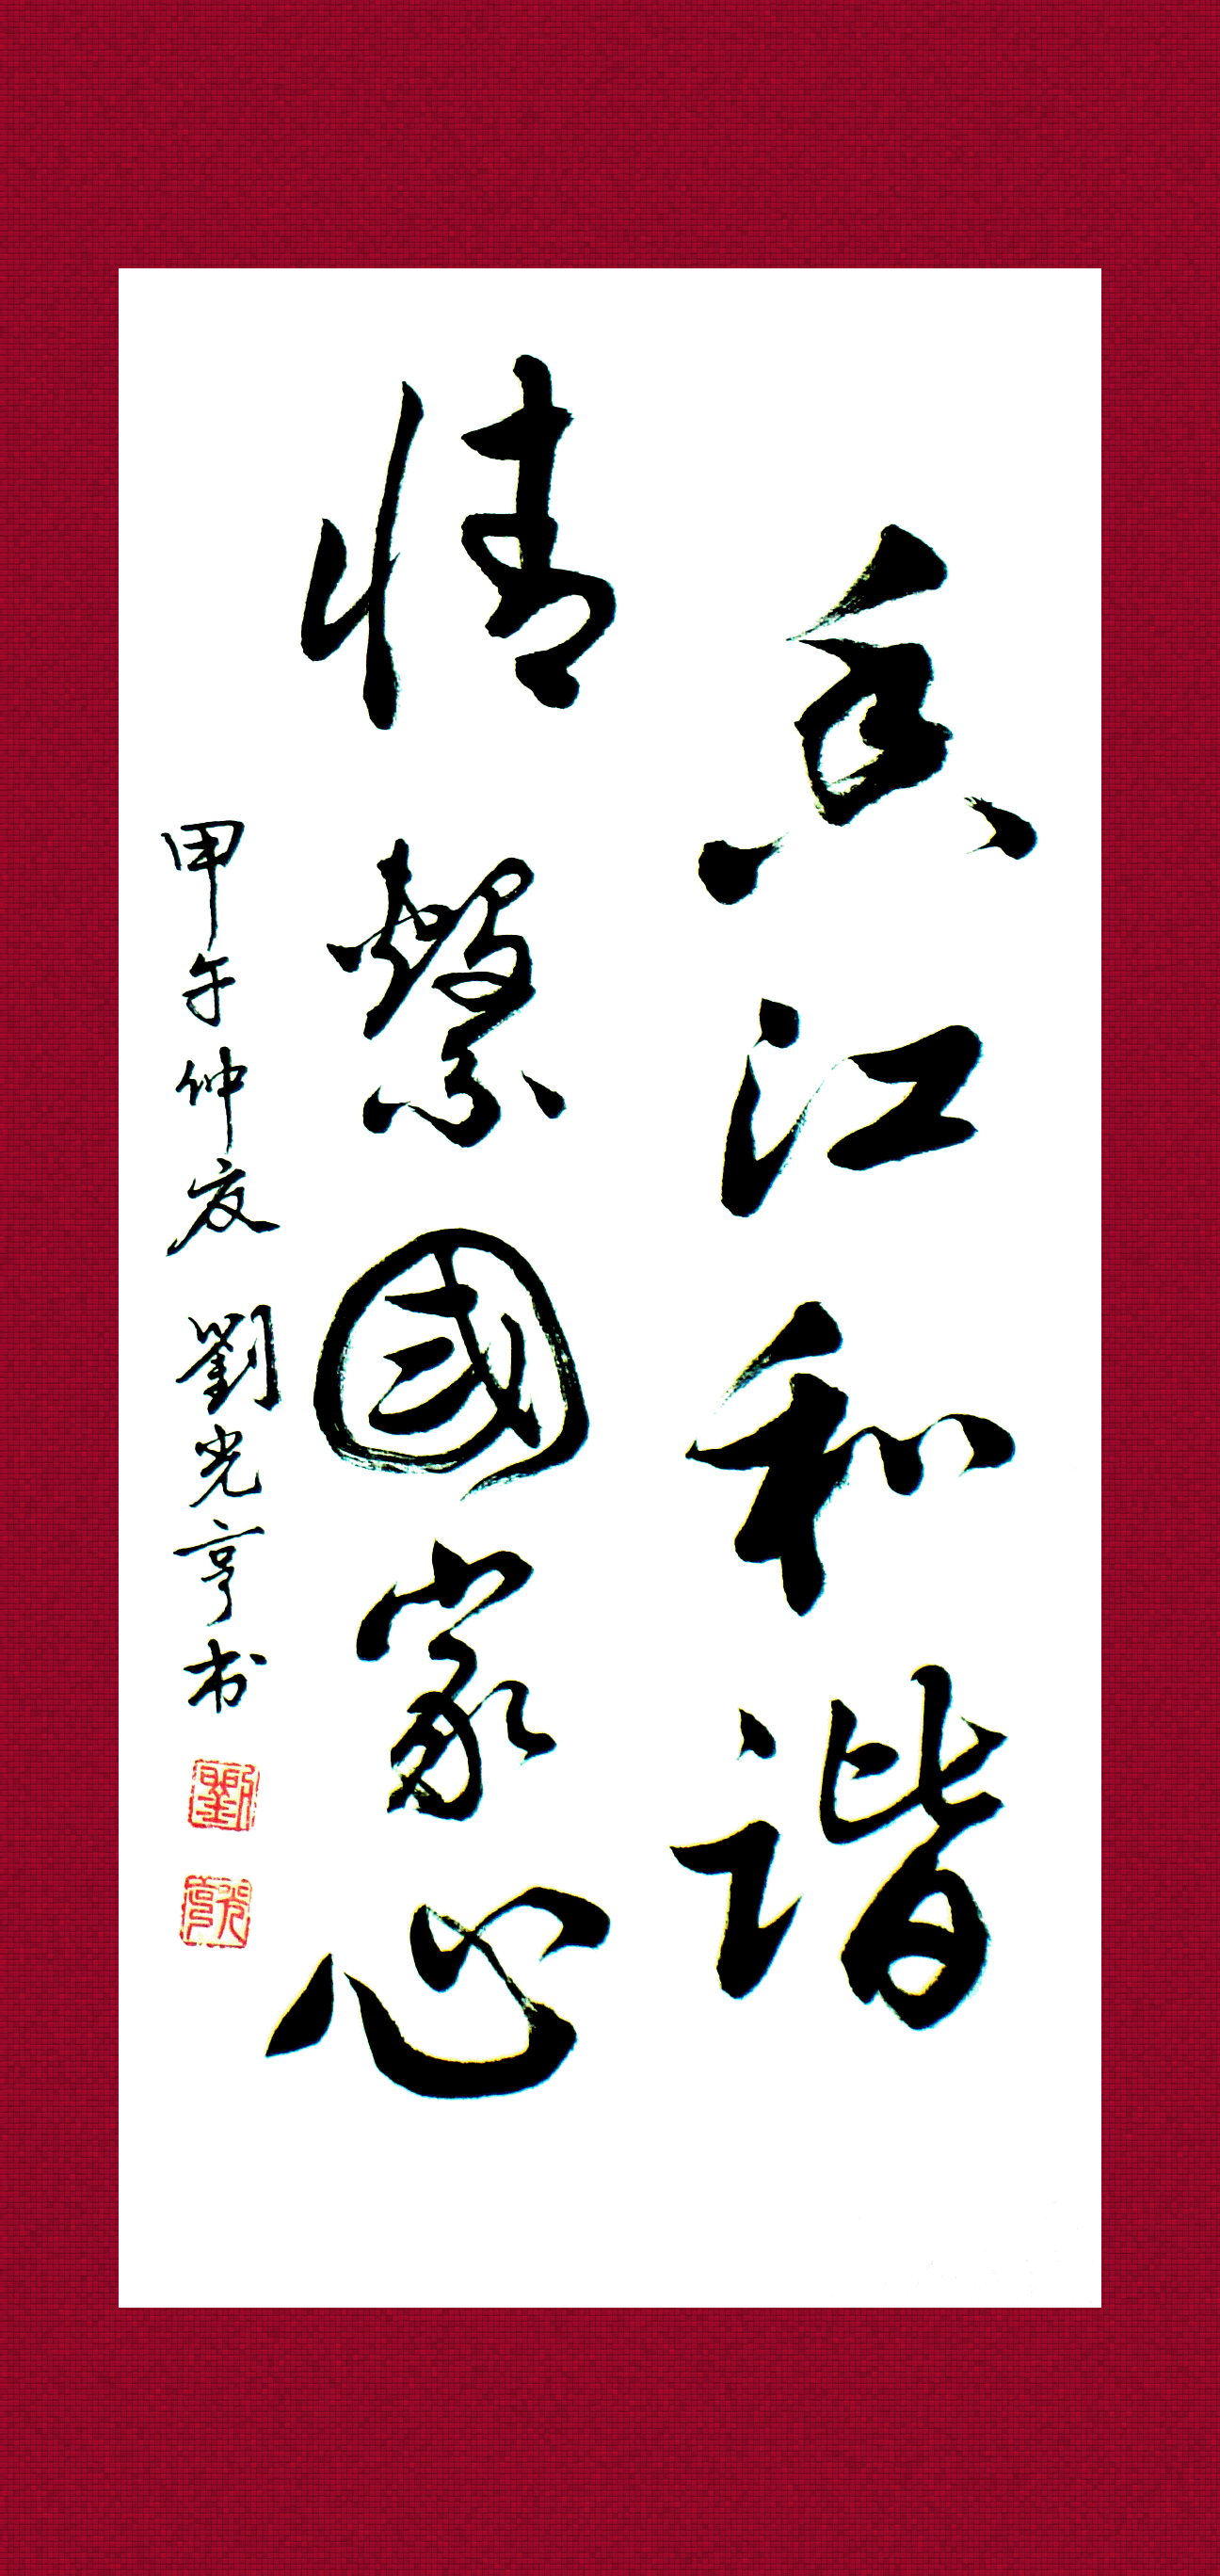 香江和谐
情繫國家心
甲午仲夏 劉光亨书
劉
光亨